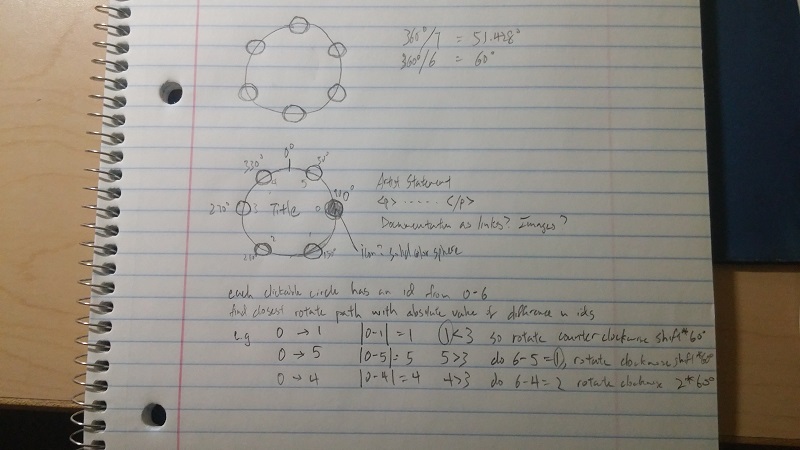 360°/7 = 51.428°
360°/6 = 60°
0°
330°
30°
4
5
270°
3
Title
0
90°
2
1
210°
150°
Artist Statement
<p> ..... </p>
Documentation as links? Images?
icon? solid color sphere
each clickable circle has an id from 0-6
find closest rotate path with absolute value of difference in ids
e.g 0 → 1 |0-1| = 1 1<3 so rotate counterclockwise shift*60°
0 → 5 |0-5| = 5 5>3 do 6-5=1, rotate clockwise shift*60°
0 → 4 |0-4| = 4 4>3 do 6-4=2 rotate clockwise 2*60°